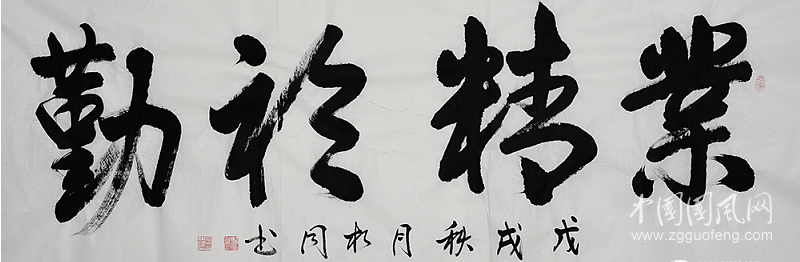 業精於勤
戊戌秋月同书
中国国风网
www.zgguofeng.com